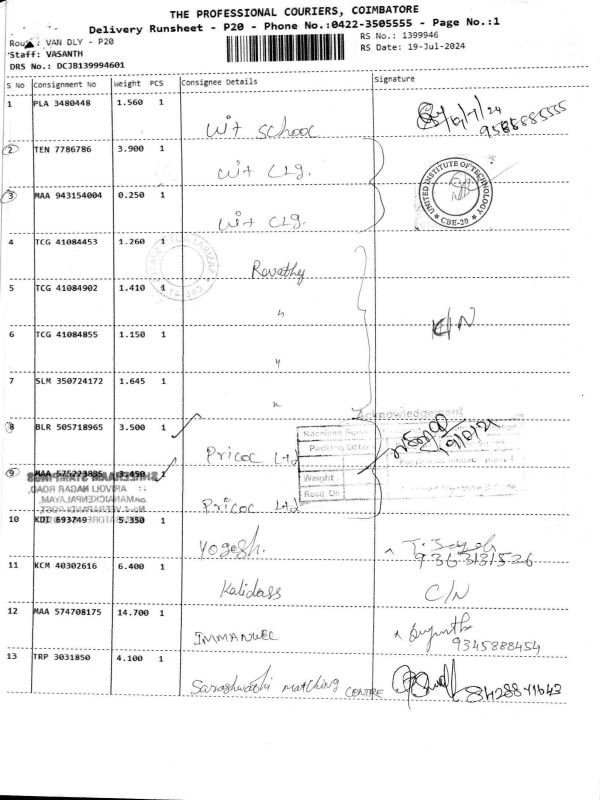 THE PROFESSIONAL COURIERS, COIMBATORE
Delivery Runsheet - P20 - Phone No.:0422-3505555 - Page No.:1
: VAN DLY - P20
RS No.: 1399946
Staff: VASANTH
RS Date: 19-Jul-2024
DRS No.: DCJB139994601
S No Consignment No Weight PCS Consignee Details Signature
1 PLA 3480448 1.560 1
Wit School
2 TEN 7786786 3.900 1
Wit Clg.
3 MAA 943154004 0.250 1
Wit Clg.
UNITED INSTITUTE OF TECHNOLOGY
CBE-20
4 TCG 41084453 1.260 1
Revathy
5 TCG 41084902 1.410 1
"
C/N
6 TCG 41084855 1.150 1
"
7 SLM 350724172 1.645 1
"
Acknowledgement
8 BLR 505718965 3.500 1
Pricoc Ltd
Packing Detail
9 MAA 575223835 3.450 1
Weight
Pricoc Ltd
10 KDI 693749 5.350 1
Yogesh.
9363131526
11 KCM 40302616 6.400 1
Kalidass
C/N
12 MAA 574708175 14.700 1
IMMANUEL
9345888454
13 TRP 3031850 4.100 1
Sarashwathi matching CENTRE